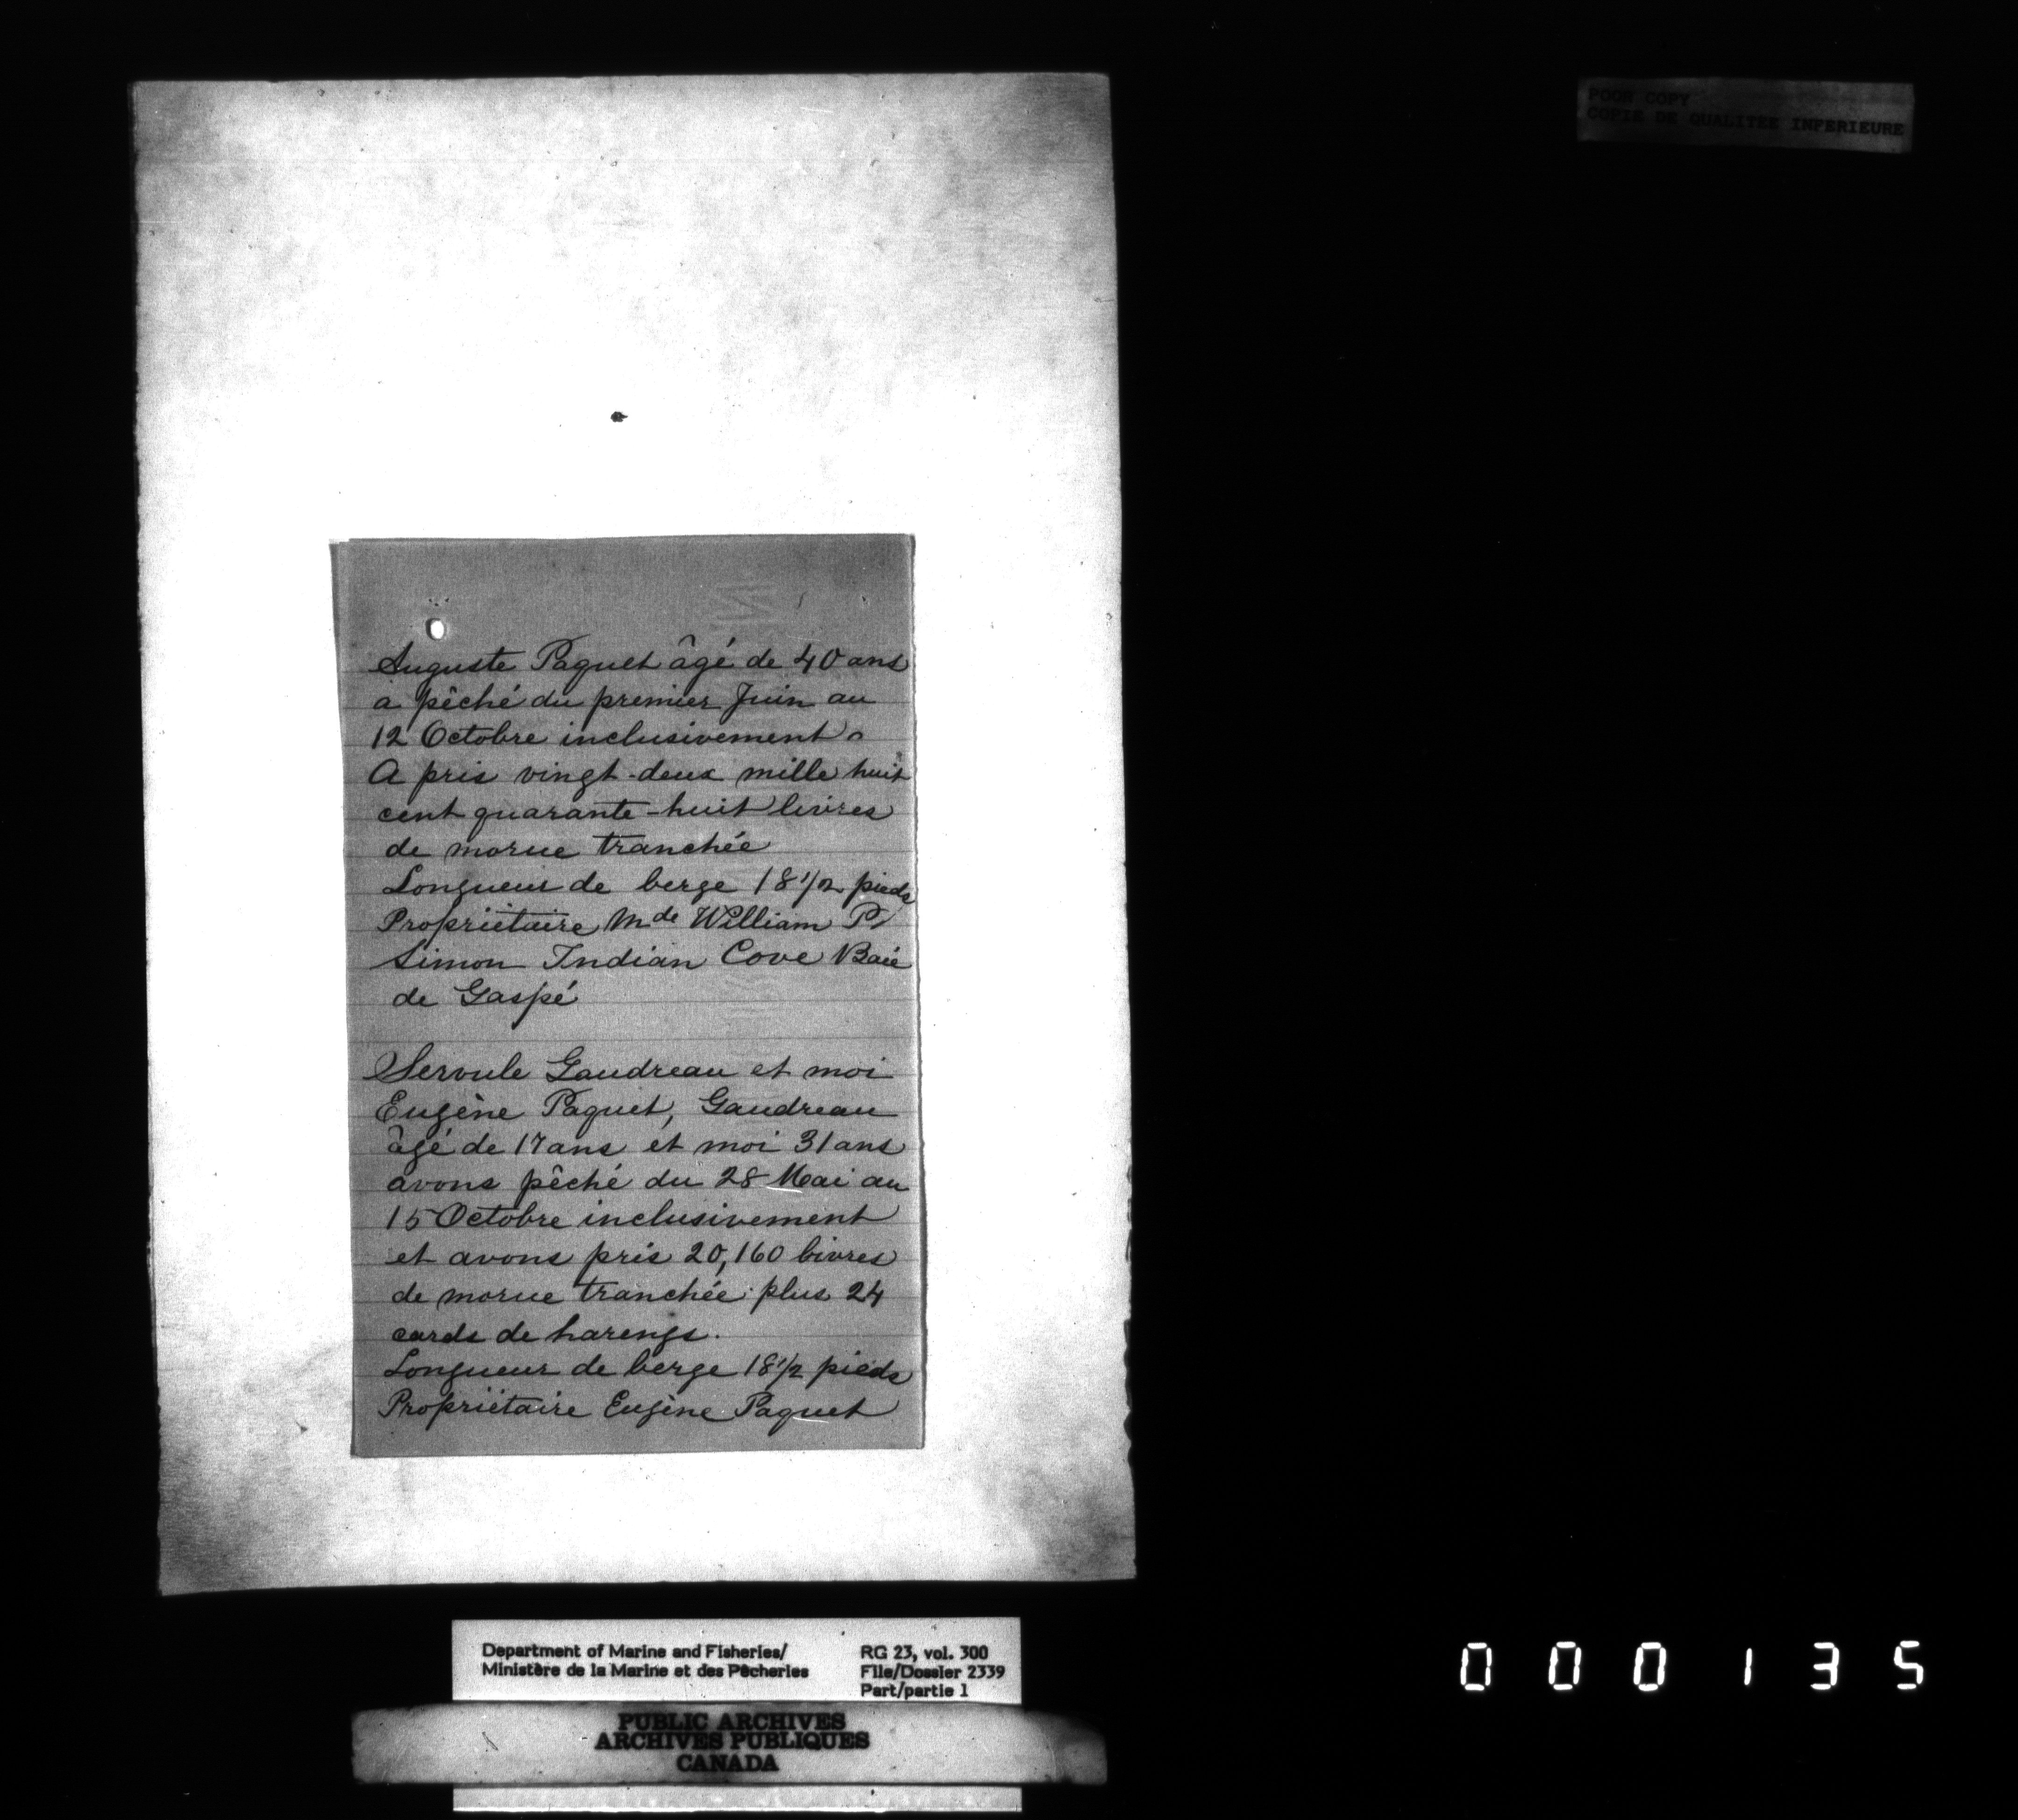 POOR COPY
COPIE DE QUALITEE INFERIEURE
Auguste Paquet âgé de 40 ans
a pêché du premier Juin au
12 Octobre inclusivement.
A pris vingt-deux mille huit
cent quarante-huit livres
de morue tranchée
Longueur de berge 18 1/2 pieds
Propriétaire Mde William P.
Simon Indian Cove Baie
de Gaspé
Servule Gaudreau et moi
Eugène Paquet, Gaudreau
âgé de 17 ans et moi 31 ans
avons pêché du 28 Mai au
15 Octobre inclusivement
et avons pris 20,160 livres
de morue tranchée plus 24
cards de harengs.
Longueur de berge 18 1/2 pieds
Propriétaire Eugène Paquet
Department of Marine and Fisheries/
Ministère de la Marine et des Pêcheries
RG 23, vol. 300
File/Dossier 2339
Part/partie 1
PUBLIC ARCHIVES
ARCHIVES PUBLIQUES
CANADA
000135